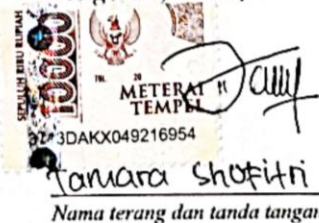 SEPULUH RIBU RUPIAH
10000
TGL. 20
METERAI
TEMPEL
3DAKX049216954
Tamara Shofitri
Nama terang dan tanda tangan